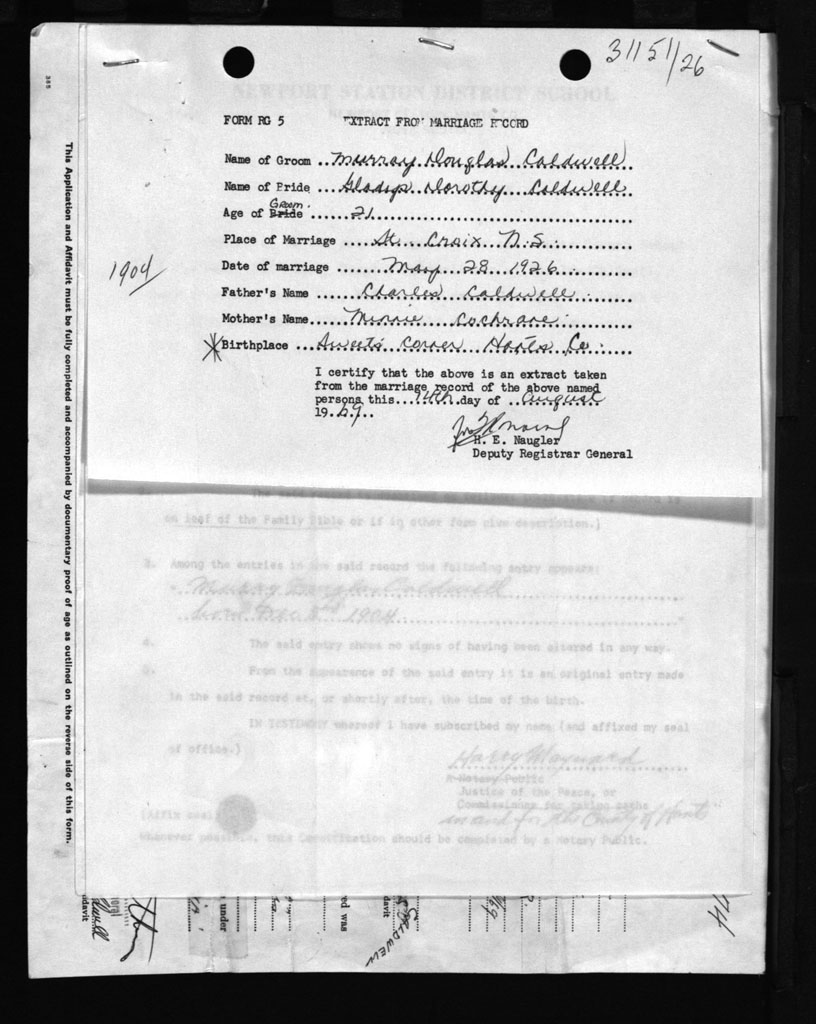 31151/26
NEWPORT STATION DISTRICT SCHOOL
FORM RG 5 EXTRACT FROM MARRIAGE RECORD
Name of Groom ..Murray Douglas Caldwell
Name of Bride ..Gladys Dorothy Caldwell
Groom.
Age of Bride ......21..............
Place of Marriage ....St. Croix N.S.
1904
Date of marriage .......May 28 1926...
Father's Name ......Charles Caldwell
Mother's Name....Minnie Cochrane
Birthplace ...Sweets Corner Hants Co.
I certify that the above is an extract taken
from the marriage record of the above named
persons this...14th.day of ..August
19.69..
H. E. Naugler
Deputy Registrar General
on leaf of the Family Bible or if in other form give description.)
3. Among the entries in the said record the following entry appears:
" Murray Douglas Caldwell
born Dec 8th 1904 "
4. The said entry shows no signs of having been altered in any way.
5. From the appearance of the said entry it is an original entry made
in the said record at, or shortly after, the time of the birth.
IN TESTIMONY whereof I have subscribed my name (and affixed my seal
of office.)
Harry Maynard
A Notary Public
Justice of the Peace, or
Commissioner for taking oaths
in and for the County of Hants
(Affix seal)
Whenever possible, this Certification should be completed by a Notary Public.
This Application and Affidavit must be fully completed and accompanied by documentary proof of age as outlined on the reverse side of this form.
davit
under
red was
davit
CALDWELL
74